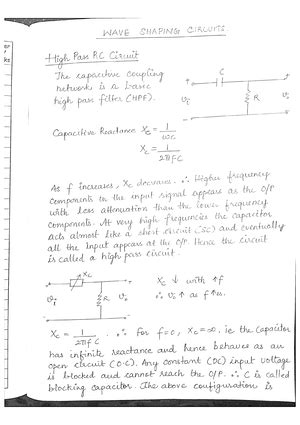 WAVE SHAPING CIRCUITS
High Pass RC Circuit
The capacitive coupling
network is a basic
high pass filter (HPF).
C
Vi
R
Vo
Capacitive Reactance Xc = 1/ωc
Xc = 1/2πfC
As f increases, Xc decreases. ∴ Higher frequency
components in the input signal appears as the O/P
with less attenuation than the lower frequency
components. At very high frequencies the capacitor
acts almost like a short circuit (SC) and eventually
all the Input appears at the O/P. Hence the circuit
is called a high pass circuit.
Xc
Vi
R
Vo
Xc ↓ with ↑f
∴ Vo ↑ as f ↑es.
Xc = 1/2πfC ∴ for f=0, Xc=∞, ie the capacitor
has infinite reactance and hence behaves as an
open circuit (O.C). Any constant (DC) input voltage
is blocked and cannot reach the O/P. ∴ C is called
blocking capacitor. The above configuration is